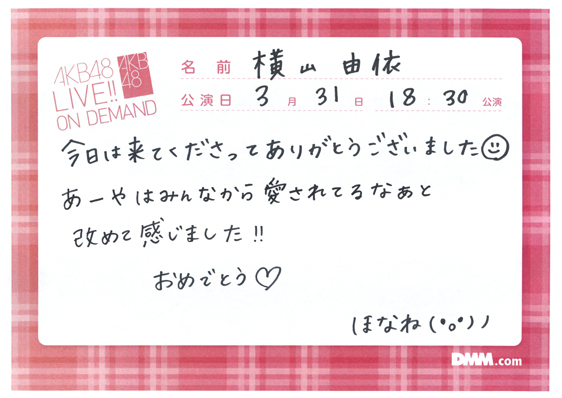 AKB48
LIVE!!
ON DEMAND
AKB
48
名 前 横山 由依
公演日 3 月 31 日 18 : 30 公演
今日は来てくださってありがとうございました☺
あーやはみんなから愛されてるなぁと
改めて感じました!!
おめでとう♡
ほなね(°o°)ノ
DMM.com